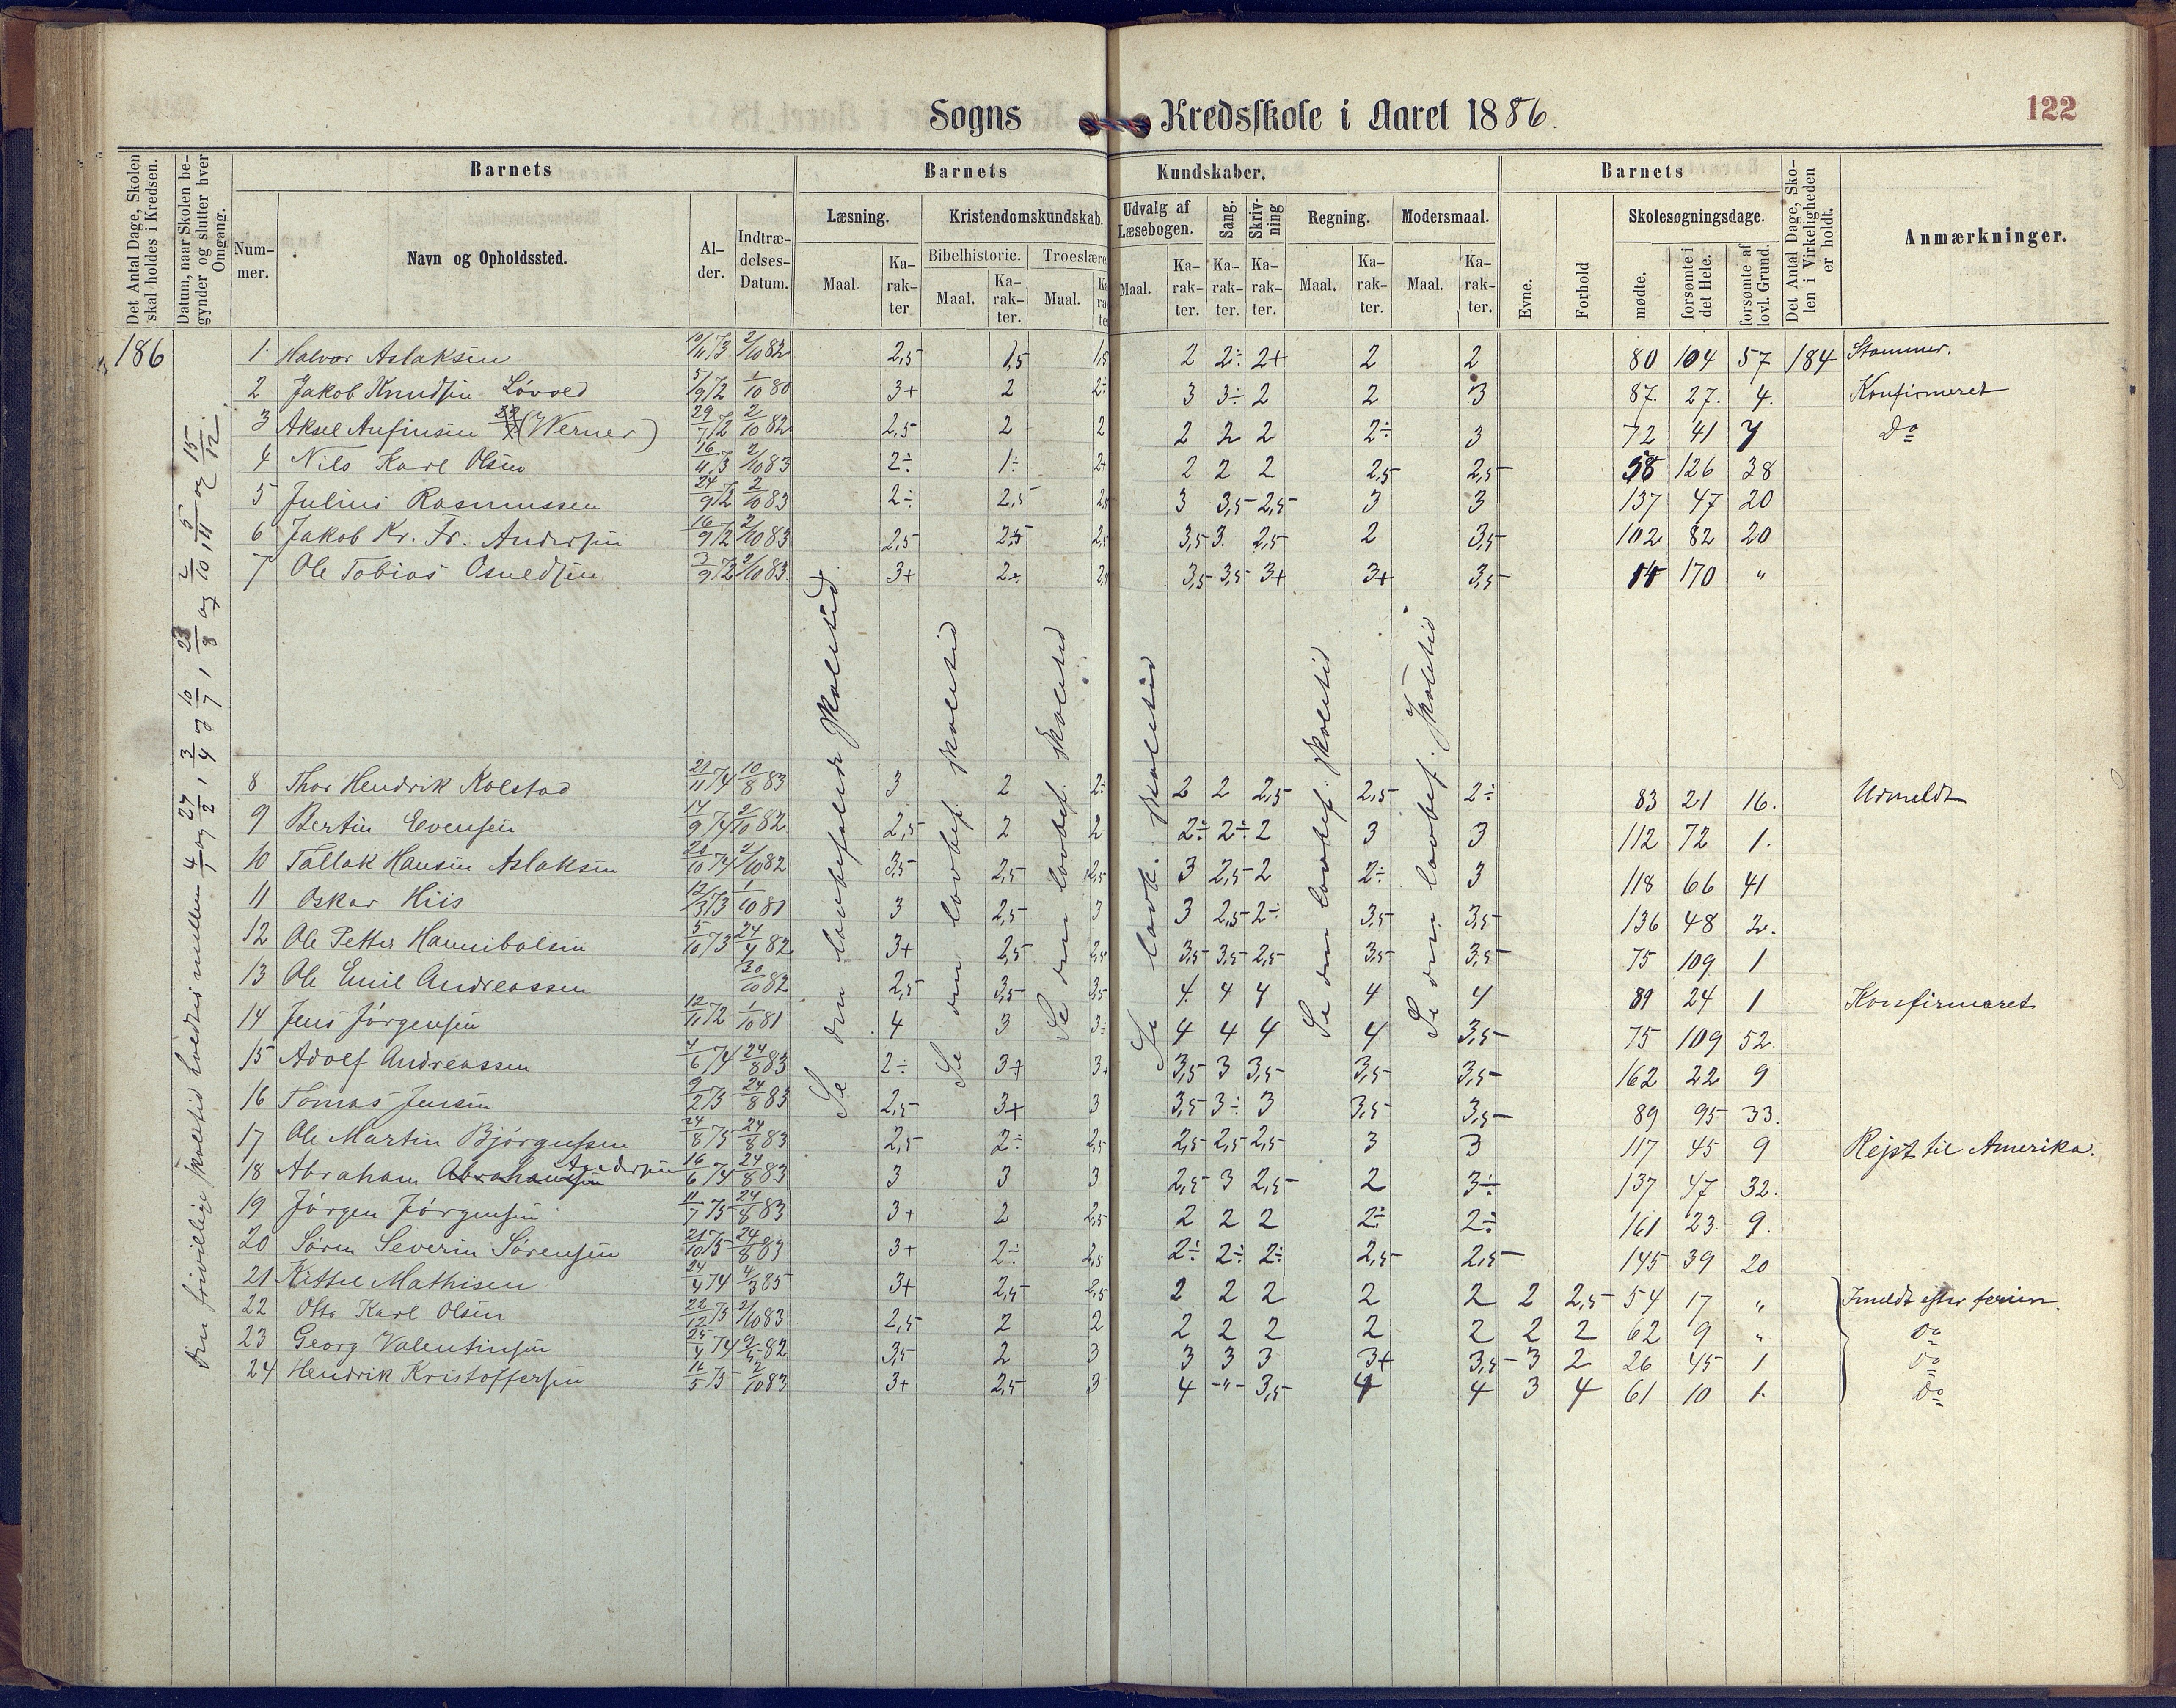 Sogns Kredsskole i Aaret 1886.
122
Det Antal Dage, Skolen skal holdes i Kredsen.
Datum, naar Skolen begynder og slutter hver Omgang.
Barnets
Barnets Kundskaber.
Barnets
Det Antal Dage, Skolen i Virkeligheden er holdt.
Anmærkninger.
Nummer.
Navn og Opholdssted.
Alder.
Indtrædelses-Datum.
Læsning.
Kristendomskundskab.
Udvalg af Læsebogen.
Sang.
Skrivning
Regning.
Modersmaal.
Evne.
Forhold
Skolesøgningsdage.
Bibelhistorie.
Troeslære.
Maal.
Karakter
Maal.
Karakter.
Maal.
Maal.
Karakter.
Karakter.
Karakter.
Maal.
Karakter.
Maal.
Karakter.
mødte.
forsømte i det Hele.
forsømte af lovl. Grund.
186
Den frivillige skoletid holdtes mellem 4/1 og 27/2, 3/4 og 10/7, 23/8 og 2/10, 5/11 og 15/12.
1 Halvor Aslaksen 10/11 73 2/10 82 2,5 1,5 1,5 2 2÷ 2+ 2 2 80 104 57 184 Stammer.
2 Jakob Knudsen Løvold 5/9 72 1/10 80 3+ 2 2÷ 3 3÷ 2 2 3 87. 27. 4. Konfirmeret
3 Aksel Anfinsen (Werner) 29/7 72 2/10 82 2,5 2 2 2 2 2 2÷ 3 72 41 7 Do
4 Nils Karl Olsen 16/11 73 2/10 83 2÷ 1÷ 2+ 2 2 2 2,5 2,5 58 126 38
5 Julius Rasmussen 24/9 72 2/10 83 2÷ 2,5 2,5 3 3,5 2,5 3 3 137 47 20
6 Jakob Kr. Fr. Andersen 16/9 72 2/10 83 2,5 2,5 2,5 3,5 3. 2,5 2 3,5 102 82 20
7 Ole Tobias Osuldsen 3/9 72 2/10 83 3+ 2+ 3,5 3,5 3+ 3+ 3,5 14 170 "
Se den lovbefalede skoletid
Se den lovbef. skoletid
Se den lovbef. skoletid
Se lovb. skoletid
Se den lovbef. skoletid
Se den lovbef. skoletid
8 Thor Hendrik Kolstad 21/11 74 10/8 83 3 2 2÷ 2 2 2,5 2,5 2÷ 83 21 16. Udmeldt
9 Bertin Evensen 14/9 74 2/10 82 2,5 2 2 2÷ 2÷ 2 3 3 112 72 1.
10 Tallak Hansen Aslaksen 20/10 74 2/10 82 3,5 2,5 2,5 3 2,5 2 2÷ 3 118 66 41
11 Oskar Hiis 12/3 73 1/10 81 3 2,5 3 3 2,5 2÷ 3,5 3,5 136 48 2.
12 Ole Petter Hannibalsen 5/10 73 24/4 82 3+ 2,5 2,5 3,5 3,5 2,5 3,5 3,5 75 109 1
13 Ole Emil Andreassen 30/10 82 2,5 3,5 3,5 4 4 4 4 4 89 24 1 Konfirmeret
14 Jens Jörgensen 12/11 72 1/10 81 4 3 3÷ 4 4 4 4 3,5 75 109 52.
15 Adolf Andreassen 4/6 74 24/8 83 2÷ 3+ 3+ 3,5 3 3,5 3,5 3,5 162 22 9
16 Tomas Jensen 9/2 73 24/8 83 2,5 3+ 3 3,5 3÷ 3 3,5 3,5 89 95 33.
17 Ole Martin Bjørgulfsen 24/8 75 24/8 83 2,5 2÷ 2,5 2,5 2,5 2,5 3 3 117 45 9 Rejst til Amerika.
18 Abraham Abrahamsen Andersen 16/6 74 24/8 83 3 3 3 2,5 3 2,5 2 3÷ 137 47 32.
19 Jörgen Jörgensen 11/7 75 24/8 83 3+ 2 2,5 2 2 2 2÷ 2÷ 161 23 9.
20 Sören Severin Sörensen 21/10 75 24/8 83 3+ 2÷ 2,5 2÷ 2÷ 2÷ 2,5 2,5 145 39 20
21 Kittel Mathisen 24/4 74 4/3 85 3+ 2,5 2,5 2 2 2 2 2 2 2,5 54 17 " Inmeldt efter ferien.
22 Otto Karl Olsen 22/12 73 2/10 83 2,5 2 2 2 2 2 2 2 2 2 62 9 " Do
23 Georg Valentinsen 25/4 74 82 3,5 2 3 3 3 3 3+ 3,5 3 2 26 45 1 Do
24 Hendrik Kristoffersen 75 2/10 83 3+ 2,5 3 4 -"- 3,5 4 4 3 4 61 10 1. Do